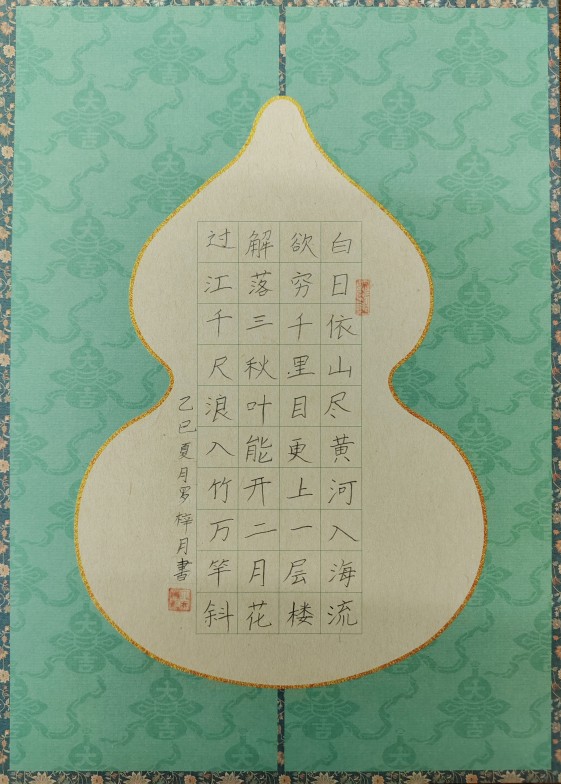 白日依山尽黄河入海流
欲穷千里目更上一层楼
解落三秋叶能开二月花
过江千尺浪入竹万竿斜
乙巳夏月罗梓月書